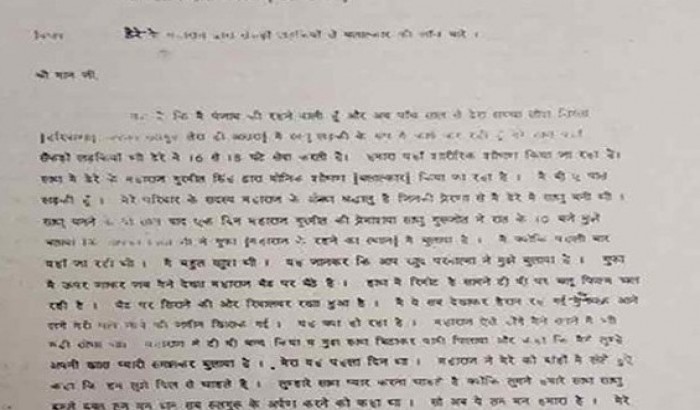 डेरे के महाराज द्वारा सैंकड़ों लड़कियों से बलात्कार की जांच बारे ।
श्री मान जी,
है कि मै पंजाब की रहने वाली हूँ और अब पाँच साल से डेरा सच्चा सौदा सिरसा
मै साधु लड़की के रूप मे कार्य कर रही हूं
सैकड़ो लड़कियां भी डेरे मे 16 से 18 घंटे सेवा करती है। हमारा यहाँ शारीरिक शोषण किया जा रहा है।
साथ मे डेरे के महाराज गुरमीत सिंह द्वारा योनिक शोषण [बलात्कार] किया जा रहा है । मै बी ए पास
लड़की हूँ । मेरे परिवार के सदस्य महाराज के श्रद्धालु है जिनकी प्रेरणा से मै डेरे मे साधु बनी थी ।
साधु बनने के बाद एक दिन महाराज गुरमीत की साधु गुरूजोत ने रात के 10 बजे मुझे
बताया कि ने गुफा [महाराज के रहने का स्थान] मे बुलाया है । मै क्योंकि पहली बार
वहाँ जा रही थी । मै बहुत खुश थी । यह जानकर कि आज खुद परमात्मा ने मुझे बुलाया है । गुफा
मे ऊपर जाकर जब मैने देखा महाराज बैड पर बैठे है । हाथ मे रिमोट है सामने टी वी पर ब्लू फिल्म चल
रही है । बैड पर सिराने की ओर रिवाल्वर रखा हुआ है । मै ये सब देखकर हैरान रह गई
मेरे पांव के नीचे की जमीन खिसक गई । यह क्या हो रहा है । महाराज ऐसे होंगे मैने सपने मे भी
नहीं सोचा था । महाराज ने टी वी बन्द किया व मुझे साथ बिठाकर पानी पिलाया और कहा कि मैने तुम्हे
अपनी खास प्यारी समझकर बुलाया है । मेरा यह पहला दिन था । महाराज ने मेरे को बांहों मे लेते हुए
कहा कि हम तुझे दिल से चाहते है । तुम्हारे साथ प्यार करना चाहते है क्योंकि तुमने हमारे साथ साधु
बनते वक्त तन मन धन सब सतगुरू के अर्पण करने को कहा था । सो अब ये तन मन हमारा है । मेरे